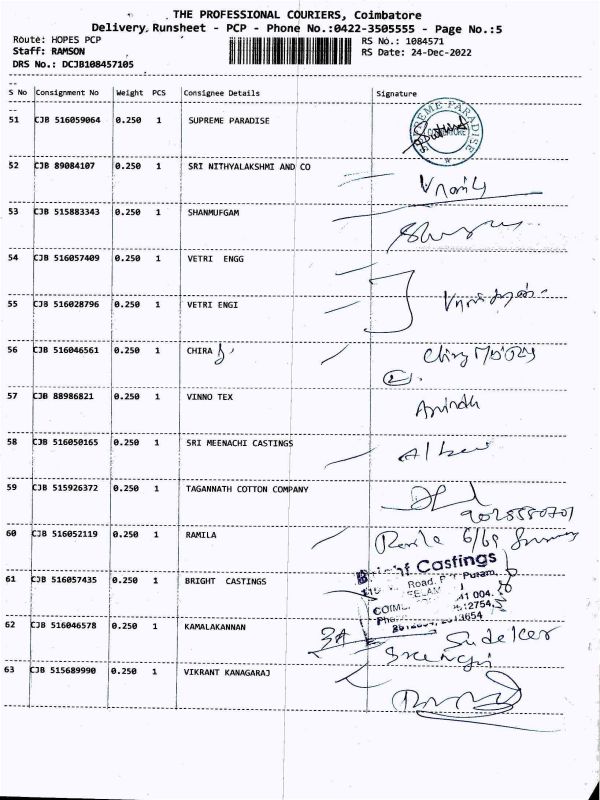 THE PROFESSIONAL COURIERS, Coimbatore
Delivery Runsheet - PCP - Phone No.:0422-3505555 - Page No.:5
Route: HOPES PCP
RS No.: 1084571
Staff: RAMSON
RS Date: 24-Dec-2022
DRS No.: DCJB108457105
S No Consignment No Weight PCS Consignee Details Signature
51 CJB 516059064 0.250 1 SUPREME PARADISE
SUPREME PARADISE
COIMBATORE
52 CJB 89084107 0.250 1 SRI NITHYALAKSHMI AND CO
53 CJB 515883343 0.250 1 SHANMUFGAM
54 CJB 516057409 0.250 1 VETRI ENGG
55 CJB 516028796 0.250 1 VETRI ENGI
56 CJB 516046561 0.250 1 CHIRA
57 CJB 88986821 0.250 1 VINNO TEX
58 CJB 516050165 0.250 1 SRI MEENACHI CASTINGS
59 CJB 515926372 0.250 1 TAGANNATH COTTON COMPANY
60 CJB 516052119 0.250 1 RAMILA
61 CJB 516057435 0.250 1 BRIGHT CASTINGS
Bright Castings
Road,
62 CJB 516046578 0.250 1 KAMALAKANNAN
Sudeker
63 CJB 515689990 0.250 1 VIKRANT KANAGARAJ